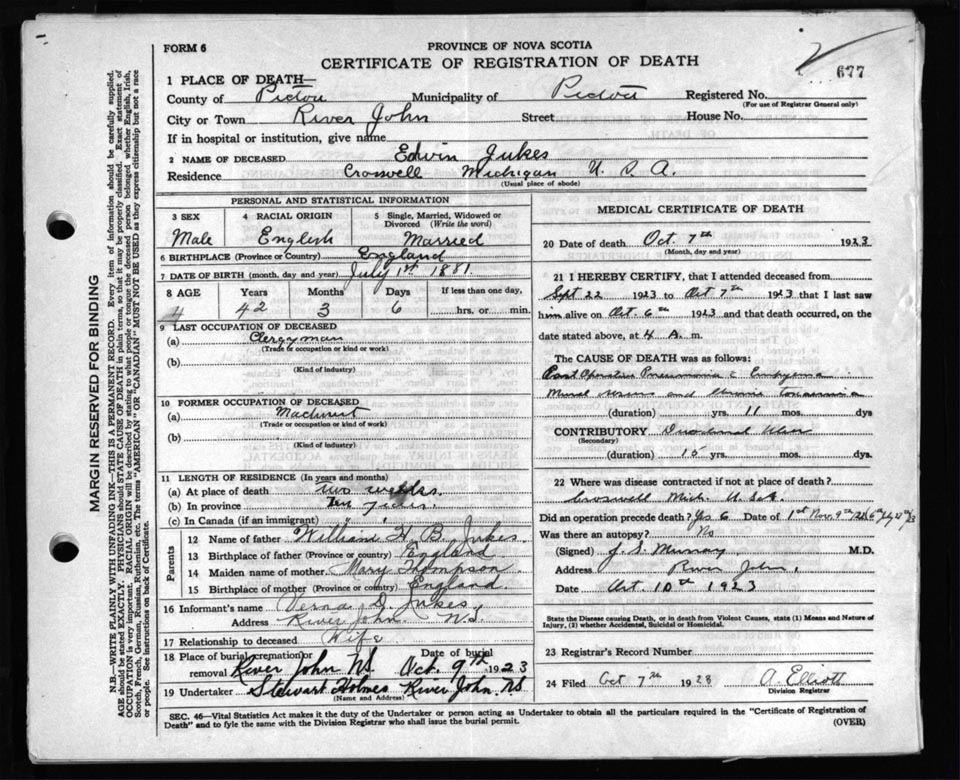 FORM 6
PROVINCE OF NOVA SCOTIA
CERTIFICATE OF REGISTRATION OF DEATH
677
1 PLACE OF DEATH—
County of Pictou Municipality of Pictou Registered No.
(For use of Registrar General only)
City or Town River John Street House No.
If in hospital or institution, give name
2 NAME OF DECEASED Edwin Jukes
Residence Croswell Michigan U. S. A.
(Usual place of abode)
PERSONAL AND STATISTICAL INFORMATION
3 SEX 4 RACIAL ORIGIN 5 Single, Married, Widowed or
Divorced (Write the word)
Male English Married
6 BIRTHPLACE (Province or Country) England
7 DATE OF BIRTH (month, day and year) July 1st 1881
8 AGE Years Months Days If less than one day,
42 3 6 hrs. or min.
9 LAST OCCUPATION OF DECEASED
(a) Clergyman
(Trade or occupation or kind or work)
(b)
(Kind of industry)
10 FORMER OCCUPATION OF DECEASED
(a) Machinist
(Trade or occupation or kind or work)
(b)
(Kind of industry)
11 LENGTH OF RESIDENCE (In years and months)
(a) At place of death two weeks
(b) In province Ten years
(c) In Canada (if an immigrant)
Parents
12 Name of father William H. B. Jukes
13 Birthplace of father (Province or country) England
14 Maiden name of mother Mary Thompson
15 Birthplace of mother (Province or country) England
16 Informant's name Verna Jukes
Address River John N.S.
17 Relationship to deceased Wife
18 Place of burial, cremation or Date of burial
removal River John NS Oct. 9th 1923
19 Undertaker Stewart Holmes River John NS
(Name and Address)
MEDICAL CERTIFICATE OF DEATH
20 Date of death Oct. 7th 1923
(Month, day and year)
21 I HEREBY CERTIFY, that I attended deceased from
Sept 22 1923 to Oct 7th 1923 that I last saw
him alive on Oct 6th 1923 and that death occurred, on the
date stated above, at 4 A. m.
The CAUSE OF DEATH was as follows:
Post Operative Pneumonia Empyema
and
(duration) yrs. 11 mos. dys
CONTRIBUTORY Duodenal Ulcer
(Secondary)
(duration) 15 yrs. mos. dys.
22 Where was disease contracted if not at place of death?
Croswell Mich. U.S.A.
Did an operation precede death? Yes 6 Date of 1st Nov. 9th
Was there an autopsy? No
(Signed) J. S. Murray M.D.
Address River John,
Date Oct. 10th 1923
State the Disease causing Death, or in death from Violent Causes, state (1) Means and Nature of
Injury, (2) whether Accidental, Suicidal or Homicidal.
23 Registrar's Record Number
24 Filed Oct 7th 1923 A. Elliott
Division Registrar
SEC. 46—Vital Statistics Act makes it the duty of the Undertaker or person acting as Undertaker to obtain all the particulars required in the "Certificate of Registration of
Death" and to fyle the same with the Division Registrar who shall issue the burial permit.
(OVER)
MARGIN RESERVED FOR BINDING
N.B.—WRITE PLAINLY WITH UNFADING INK—THIS IS A PERMANENT RECORD. Every item of information should be carefully supplied.
AGE should be stated EXACTLY. PHYSICIANS should STATE CAUSE OF DEATH in plain terms, so that it may be properly classified. Exact statement of
OCCUPATION is very important. RACIAL ORIGIN will be described by stating to what people or tongue the deceased person belonged whether English, Irish,
Scotch, French, German, Russian, Ruthenian, etc. The terms "AMERICAN" OR "CANADIAN" MUST NOT BE USED as they express citizenship but not a race
or people. See instructions on back of Certificate.